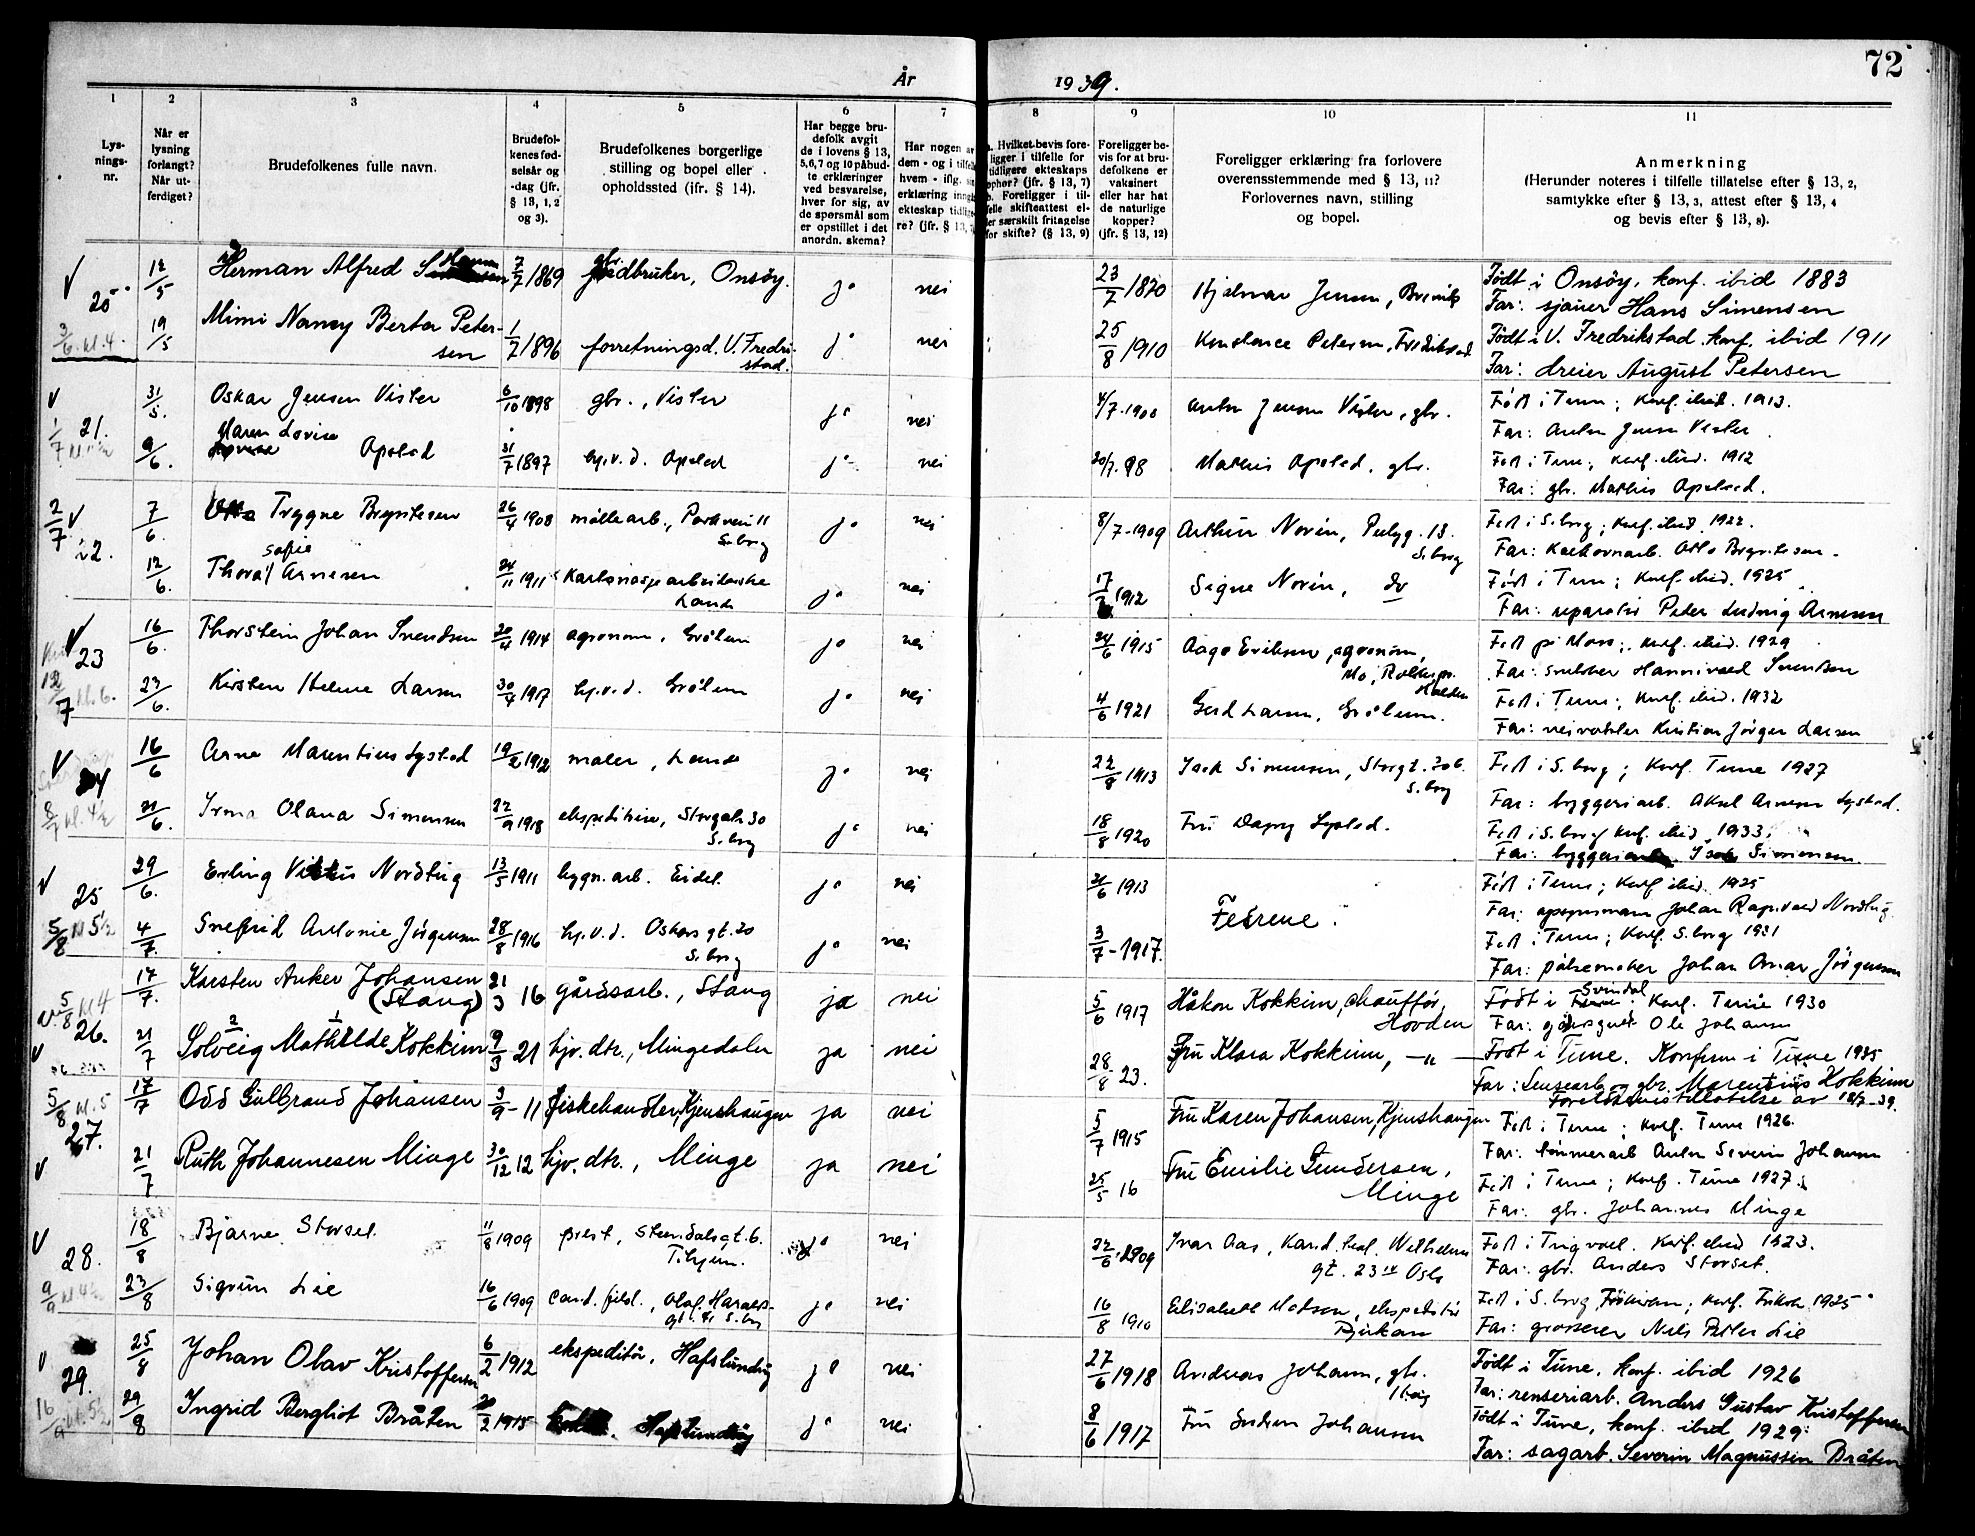 72
År 1939.
1
2
3
4
5
6
7
8
9
10
11
Lys-
nings-
nr.
Når er
lysning
forlangt?
Når ut-
ferdiget?
Brudefolkenes fulle navn.
Brudefol-
kenes fød-
selsår og
-dag (jfr.
§ 13, 1, 2
og 3).
Brudefolkenes borgerlige
stilling og bopel eller
opholdssted (jfr. § 14).
Har begge bru-
defolk avgit
de i lovens § 13,
5,6,7 og 10 påbud-
te erklæringer
ved besvarelse,
hver for sig, av
de spørsmål som
er opstillet i det
anordn. skema?
Har nogen av
dem - og i tilfelle
hvem - iflg. sin
erklæring inngått
ekteskap tidlige-
re? (jfr. § 13,
a. Hvilket bevis fore-
ligger i tilfelle for
tidligere ekteskaps
ophør? (jfr. § 13, 7)
b. Foreligger i til-
felle skifteattest el-
ler særskilt fritagelse
for skifte? (§ 13, 9)
Foreligger be-
vis for at bru-
defolkene er
vaksinert
eller har hat
de naturlige
kopper?
(jfr. § 13, 12)
Foreligger erklæring fra forlovere
overensstemmende med § 13, 11?
Forlovernes navn, stilling
og bopel.
Anmerkning
(Herunder noteres i tilfelle tillatelse efter § 13, 2,
samtykke efter § 13, 3, attest efter § 13, 4
og bevis efter § 13, 8).
12/5 Herman Alfred 7/7 1869 gbr. Onsøy. ja nei 23/7 1870 Hjalmar Jensen, Brevik Født i Onsøy, konf. ibid 1883
20 Far: sjauer Hans Simensen
19/5 Mimi Nancy Berta Peter- 1/7 1896 forretningsd. V. Fredrik- ja nei 25/8 1910 Konstance Petersen, Fredrikstad Født i V. Fredrikstad, konf. ibid 1911
3/6 kl. 4. sen stad. Far: dreier August Petersen
31/5. Oskar Jensen Visler 6/10 1898 gbr., Visler ja nei 4/7-1900 Anton Jensen Visler, gbr. Født i Tune; Konf. ibid. 1913.
21. Far: Anton Jensen Visler.
1/7 9/6. Maren Lovise Opstad 31/7 1897 hj.v.d. Opstad ja nei 20/7.98 Mathis Opstad, gbr. Født i Tune, Konf. ibid. 1912
Far: gbr. Mathis Opstad.
2/7 7/6. Trygve Bryntesen 26/4 1908 møllearb., Parkveien 11 S.borg ja nei 8/7-1909 Arthur Norin, S.borg Født i S.borg; Konf. ibid. 1922.
22. Far: Otto Bryntesen.
12/6. Thora Sofie Arnesen 24/11 1911 Lande ja nei 17/ 1912 Signe Norin, do Født i Tune; Konf. ibid. 1925
Far: reparatør Peder Ludvig Arnesen
23 16/6. Thorstein Johan Svendsen 20/4 1914 agronom, Grålum ja nei 24/6 1915 Aage Eriksen, agronom, Født på Moss; Konf. ibid. 1929
Mo, Halden Far: snekker Hannivald Svendsen
12/7 kl. 6. 23/6. Kirsten Helene Larsen 30/4 1917 hj.v.d. Grålum ja nei 4/6 1921 Gerd Larsen, Grålum. Født i Tune; Konf. ibid. 1932
Far: veivokter Kristian Jørgen Larsen
24 16/6 Arne Marentius Lystad 19/2 1912 maler, Lande ja nei 22/9 1913 Isak Simensen, Storgt. 30 b. S.borg Født i S.borg; Konf. Tune 1927
Far: bryggeriarb. Aksel Arnesen Lystad.
21/6. Irma Olana Simensen 22/9 1918 ekspeditrise, Storgata 30 S.borg ja nei 18/8 1920 Fru Dagny Lystad. Født i S.borg Konf. ibid. 1933.
Far: Isak Simensen.
29/6. Erling Nordtug 13/5 1911 bygn.arb. Eidet. ja nei 21/6 1913 Fedrene. Født i Tune; Konf. ibid. 1925
25 Far: Johan Ragnvald Nordtug
5/8 kl 5½ 4/7. Snefrid Antonie Jørgensen 28/8 1916 hj.v.d. Oskars gt. 20 S.borg ja nei 3/7-1917. Født i Tune; Konf. S.borg 1931
Far: pølsemaker Johan Omar Jørgensen
5/8 kl 4 17/7. Karsten Anker Johansen 21/3 16 gårdsarb., Stang ja nei 5/6 1917 Håkon Kokkim, chauffør, Født i Svindal. Konf. Tune 1930
26. (Stang) Hovden Far: Ole Johansen
21/7 Solveig Mathilde Kokkim 9/3 21 hjv. dtr., Mingedalen ja nei 28/8 23. Fru Klara Kokkim, — " — Født i Tune. Konfirm i Tune 1935
Far: Lensearb og gbr. Marentius Kokkim
Foreldrenes tillatelse av 18/7-39.
5/8 kl. 5 17/7 Odd Gulbrand Johansen 3/9-11 fiskehandler, Kjenshaugen ja nei 3/7 1915 Fru Karen Johansen, Kjenshaugen Født i Tune; Konf. Tune 1926.
27. Far: tømmerarb Anton Severin Johansen
21/7 Ruth Johannesen Minge 30/12 12 hjv. dtr., Minge ja nei 25/5 16 Fru Emilie Gundersen, Minge Født i Tune; Konf. Tune 1927.
Far: gbr. Johannes Minge
28. 18/8 Bjarne Storset. 11/8 1909 prest, Steendalsgt. 6. ja nei 22/6 1909 Ivar Aas, Kand. teol. Wilhelms Født i Trygvad. Konf. ibid 1923.
T.hjem. gt. 23 Oslo Far: gbr. Anders Storset.
9/9 23/8 Sigrun Lie 16/6 1909 Cand. filol., Olaf Haralds- ja nei 16/8 1910 Elisabeth Madsen, ekspeditør Rjukan Født i S.borg; Konf. 1925
gt. S.borg Far: grosserer Nils Peter Lie
29. 25/8 Johan Olav Kristoffersen 6/2 1912 ekspeditør, Hafslundsøy ja nei 27/6 1918 Andreas Johansen, gbr. Født i Tune, konf. ibid 1926
Far: renseriarb. Anders Gustav Kristoffersen
16/9 kl. 5½ 29/8 Ingrid Bergliot Bråten 20/2 1915 Hafslundsøy ja nei 8/6 1917 Fru Johansen Født i Tune, konf. ibid 1929.
Far: sagarb. Severin Magnussen Bråten